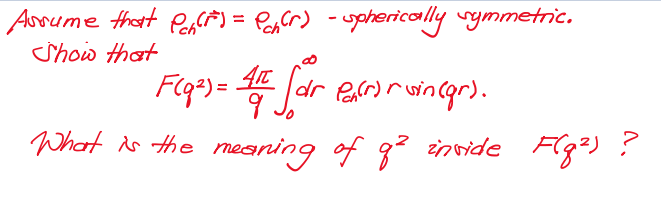 Assume that ρ_ch(r⃗) = ρ_ch(r) - spherically symmetric.
Show that
F(q²) = 4π/q ∫₀^∞ dr ρ_ch(r) r sin(qr).
What is the meaning of q² inside F(q²) ?